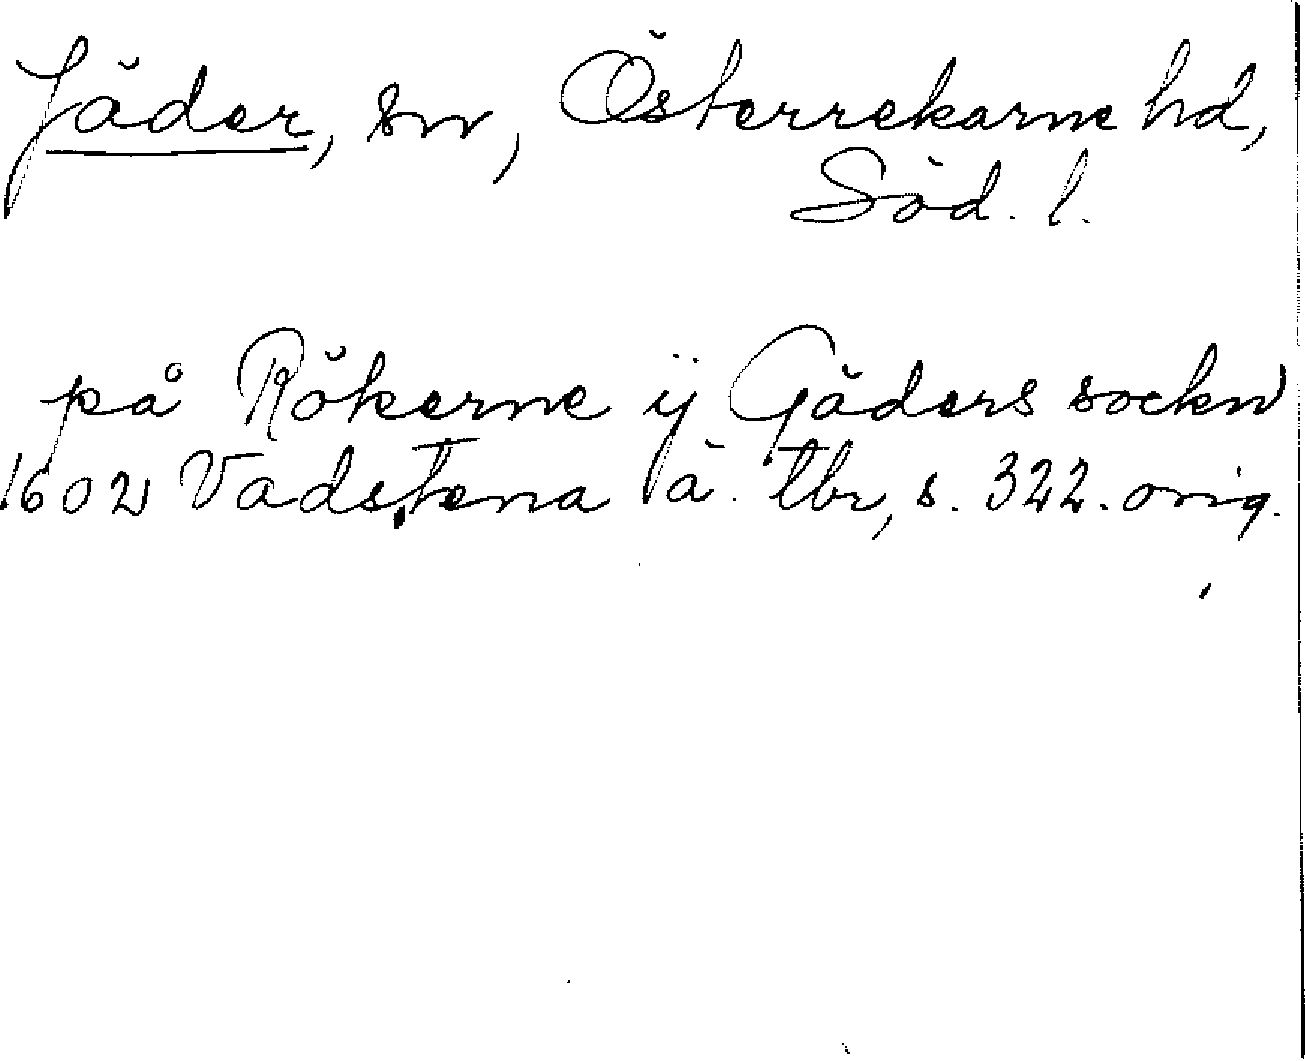 Jäder, sn, Österrekarne hd,
Söd. l.
på Rökerne ÿ Gäders sockn
1602 Vadstena ä. tbr, s. 322. orig.